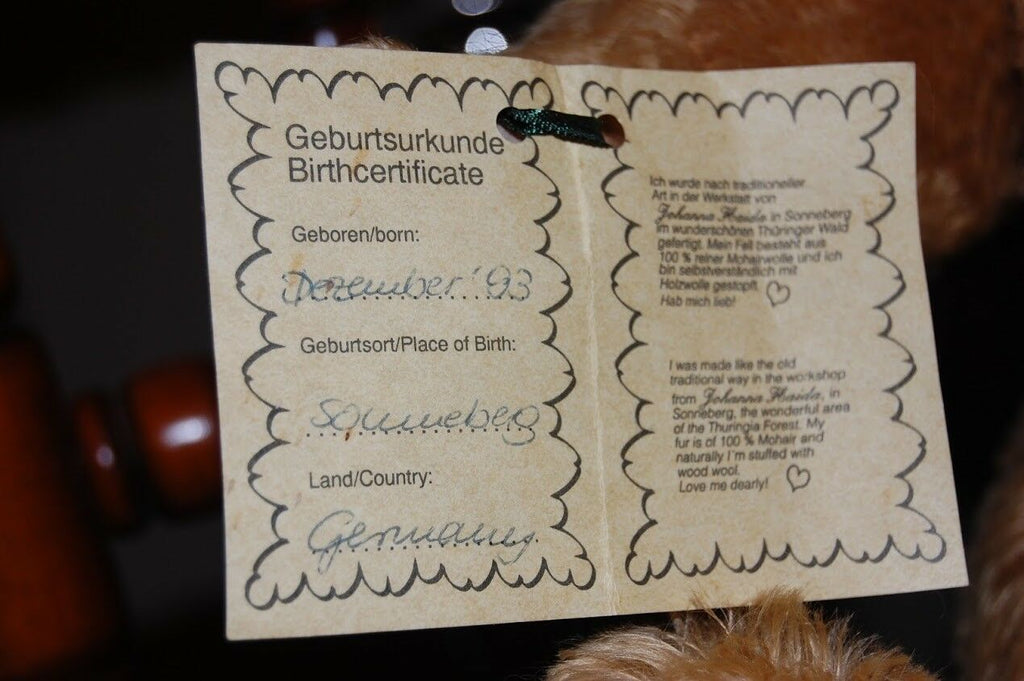 Geburtsurkunde
Birthcertificate
Geboren/born:
Dezember '93
Geburtsort/Place of Birth:
Sonneberg
Land/Country:
Germany
Ich wurde nach traditioneller
Art in der Werkstatt von
Johanna Haida in Sonneberg
im wunderschönen Thüringer Wald
gefertigt. Mein Fell besteht aus
100 % reiner Mohairwolle und ich
bin selbstverständlich mit
Holzwolle gestopft.
Hab mich lieb!
I was made like the old
traditional way in the workshop
from Johanna Haida, in
Sonneberg, the wonderful area
of the Thuringia Forest. My
fur is of 100 % Mohair and
naturally I´m stuffed with
wood wool.
Love me dearly!